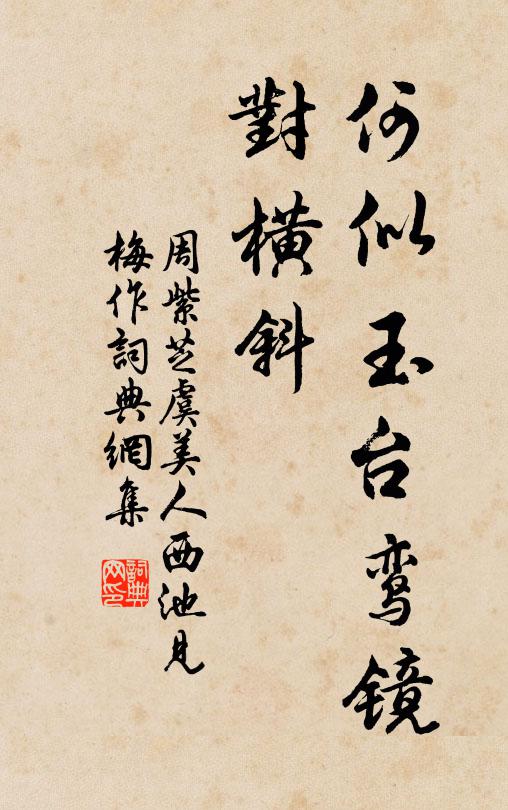 何似玉台鸾镜
對橫斜
周紫芝虞美人西池見
梅作詞典網集
詞典
网印